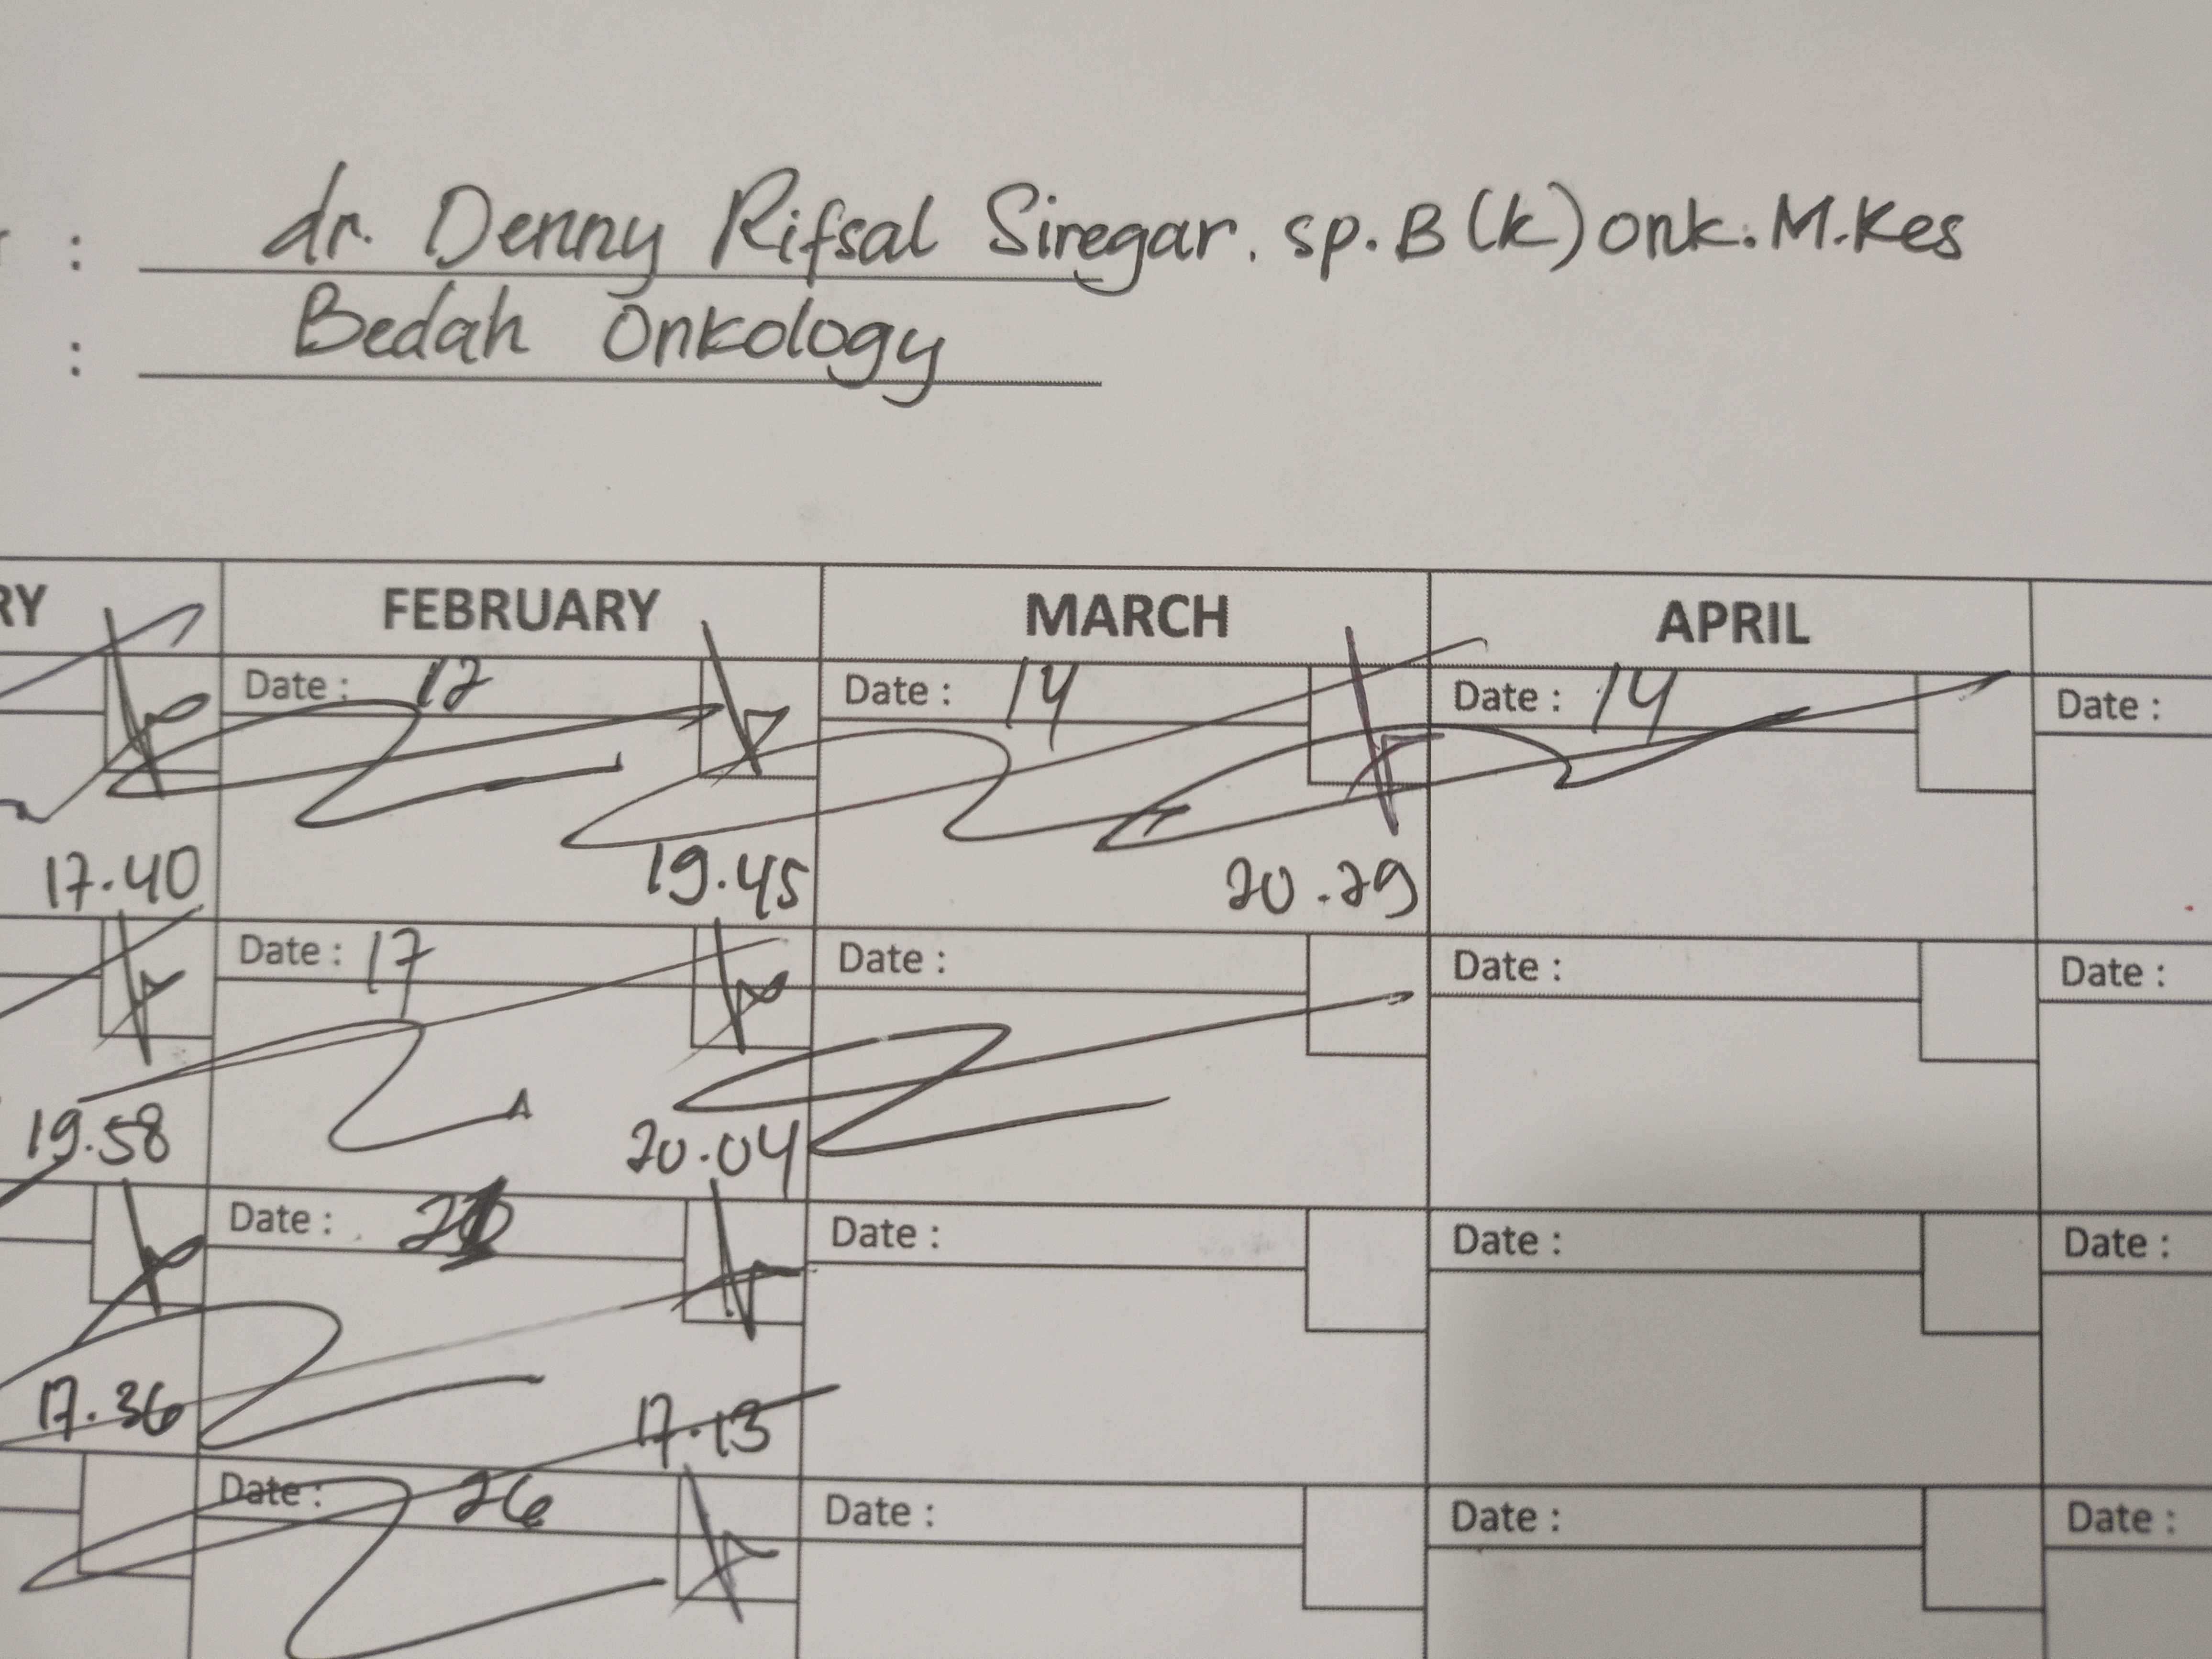 : dr. Denny Rifsal Siregar. sp.B(k)onk.M.Kes
: Bedah Onkology
RY FEBRUARY MARCH APRIL
Date : Date : 14 Date : 14 Date :
17.40 19.45 20.29
Date : 17 Date : Date : Date :
19.58 20.04
Date : Date : Date : Date :
17.36 17.13
Date : 26 Date : Date : Date :